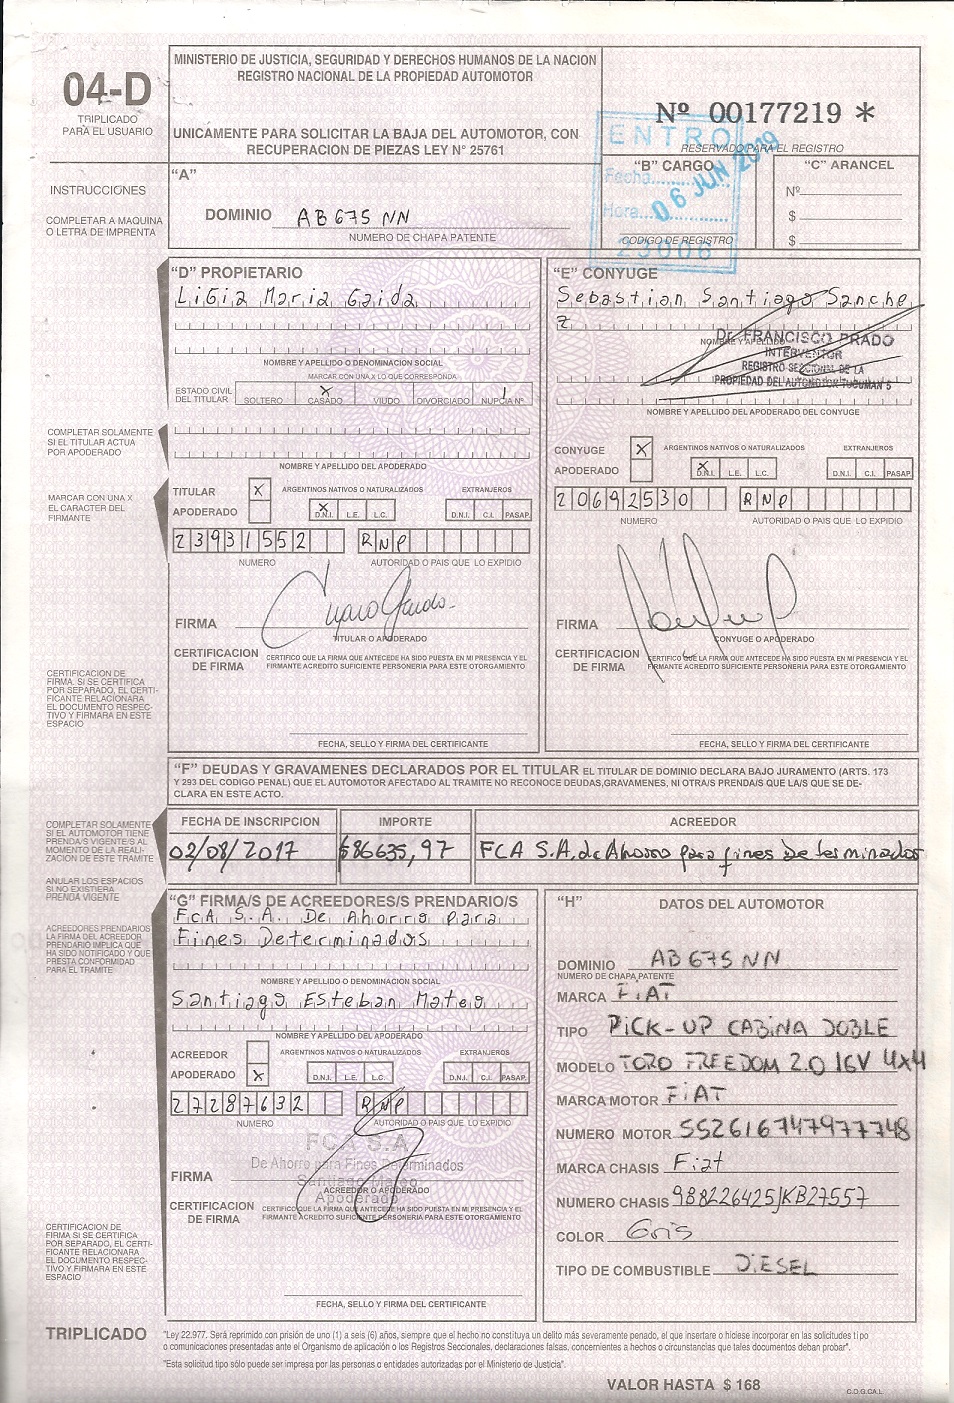 04-D
TRIPLICADO
PARA EL USUARIO
MINISTERIO DE JUSTICIA, SEGURIDAD Y DERECHOS HUMANOS DE LA NACION
REGISTRO NACIONAL DE LA PROPIEDAD AUTOMOTOR
UNICAMENTE PARA SOLICITAR LA BAJA DEL AUTOMOTOR, CON
RECUPERACION DE PIEZAS LEY N° 25761
Nº 00177219 *
RESERVADO PARA EL REGISTRO
ENTRO
Fecha
06 JUN 2019
Hora
23006
"B" CARGO
CODIGO DE REGISTRO
"C" ARANCEL
Nº
$
$
INSTRUCCIONES
COMPLETAR A MAQUINA
O LETRA DE IMPRENTA
"A"
DOMINIO AB 675 NN
NUMERO DE CHAPA PATENTE
"D" PROPIETARIO
Ligia Maria Gaida
NOMBRE Y APELLIDO O DENOMINACION SOCIAL
MARCAR CON UNA X LO QUE CORRESPONDA
ESTADO CIVIL
DEL TITULAR
SOLTERO CASADO X VIUDO DIVORCIADO NUPCIA Nº 1
COMPLETAR SOLAMENTE
SI EL TITULAR ACTUA
POR APODERADO
NOMBRE Y APELLIDO DEL APODERADO
MARCAR CON UNA X
EL CARACTER DEL
FIRMANTE
TITULAR X ARGENTINOS NATIVOS O NATURALIZADOS EXTRANJEROS
APODERADO X D.N.I. L.E. L.C. D.N.I. C.I. PASAP.
23931552 RNP
NUMERO AUTORIDAD O PAIS QUE LO EXPIDIO
FIRMA
TITULAR O APODERADO
CERTIFICACION
DE FIRMA
CERTIFICO QUE LA FIRMA QUE ANTECEDE HA SIDO PUESTA EN MI PRESENCIA Y EL
FIRMANTE ACREDITO SUFICIENTE PERSONERIA PARA ESTE OTORGAMIENTO
CERTIFICACION DE
FIRMA. SI SE CERTIFICA
POR SEPARADO, EL CERTI-
FICANTE RELACIONARA
EL DOCUMENTO RESPEC-
TIVO Y FIRMARA EN ESTE
ESPACIO
FECHA, SELLO Y FIRMA DEL CERTIFICANTE
"E" CONYUGE
Sebastian Santiago Sanche
z
NOMBRE Y APELLIDO
Dr. FRANCISCO PRADO
INTERVENTOR
REGISTRO SECCIONAL DE LA
PROPIEDAD DEL AUTOMOTOR TUCUMAN 5
NOMBRE Y APELLIDO DEL APODERADO DEL CONYUGE
CONYUGE X ARGENTINOS NATIVOS O NATURALIZADOS EXTRANJEROS
APODERADO X D.N.I. L.E. L.C. D.N.I. C.I. PASAP.
20692530 RNP
NUMERO AUTORIDAD O PAIS QUE LO EXPIDIO
FIRMA
CONYUGE O APODERADO
CERTIFICACION
DE FIRMA
CERTIFICO QUE LA FIRMA QUE ANTECEDE HA SIDO PUESTA EN MI PRESENCIA Y EL
FIRMANTE ACREDITO SUFICIENTE PERSONERIA PARA ESTE OTORGAMIENTO
FECHA, SELLO Y FIRMA DEL CERTIFICANTE
"F" DEUDAS Y GRAVAMENES DECLARADOS POR EL TITULAR EL TITULAR DE DOMINIO DECLARA BAJO JURAMENTO (ARTS. 173
Y 293 DEL CODIGO PENAL) QUE EL AUTOMOTOR AFECTADO AL TRAMITE NO RECONOCE DEUDAS,GRAVAMENES, NI OTRA/S PRENDA/S QUE LA/S QUE SE DE-
CLARA EN ESTE ACTO.
COMPLETAR SOLAMENTE
SI EL AUTOMOTOR TIENE
PRENDA/S VIGENTE/S AL
MOMENTO DE LA REALI-
ZACION DE ESTE TRAMITE
ANULAR LOS ESPACIOS
SI NO EXISTIERA
PRENDA VIGENTE
FECHA DE INSCRIPCION IMPORTE ACREEDOR
02/08/2017 $86635,97 FCA S.A. de Ahorro para fines Determinados
ACREEDORES PRENDARIOS
LA FIRMA DEL ACREEDOR
PRENDARIO IMPLICA QUE
HA SIDO NOTIFICADO Y QUE
PRESTA CONFORMIDAD
PARA EL TRAMITE
"G" FIRMA/S DE ACREEDORES/S PRENDARIO/S
FCA S.A. De Ahorro Para
Fines Determinados
NOMBRE Y APELLIDO O DENOMINACION SOCIAL
Santiago Esteban Mateo
NOMBRE Y APELLIDO DEL APODERADO
ACREEDOR ARGENTINOS NATIVOS O NATURALIZADOS EXTRANJEROS
APODERADO X D.N.I. L.E. L.C. D.N.I. C.I. PASAP.
27287632 RNP
NUMERO AUTORIDAD O PAIS QUE LO EXPIDIO
FCA S.A
De Ahorro para Fines Determinados
Santiago Mateo
Apoderado
FIRMA
ACREEDOR O APODERADO
CERTIFICACION
DE FIRMA
CERTIFICO QUE LA FIRMA QUE ANTECEDE HA SIDO PUESTA EN MI PRESENCIA Y EL
FIRMANTE ACREDITO SUFICIENTE PERSONERIA PARA ESTE OTORGAMIENTO
CERTIFICACION DE
FIRMA SI SE CERTIFICA
POR SEPARADO, EL CERTI-
FICANTE RELACIONARA
EL DOCUMENTO RESPEC-
TIVO Y FIRMARA EN ESTE
ESPACIO
FECHA, SELLO Y FIRMA DEL CERTIFICANTE
"H" DATOS DEL AUTOMOTOR
DOMINIO AB 675 NN
NUMERO DE CHAPA PATENTE
MARCA FiAT
TIPO PiCK-UP CABINA DOBLE
MODELO TORO FREEDOM 2.0 16V 4x4
MARCA MOTOR FiAT
NUMERO MOTOR 552616747977748
MARCA CHASIS Fiat
NUMERO CHASIS 988226425JKB27557
COLOR Gris
TIPO DE COMBUSTIBLE DiESEL
TRIPLICADO
"Ley 22.977. Será reprimido con prisión de uno (1) a seis (6) años, siempre que el hecho no constituya un delito más severamente penado, el que insertare o hiciese incorporar en las solicitudes tipo
o comunicaciones presentadas ante el Organismo de aplicación o los Registros Seccionales, declaraciones falsas, concernientes a hechos o circunstancias que tales documentos deban probar".
"Esta solicitud tipo sólo puede ser impresa por las personas o entidades autorizadas por el Ministerio de Justicia".
VALOR HASTA $ 168
C.O.G.CA.L.